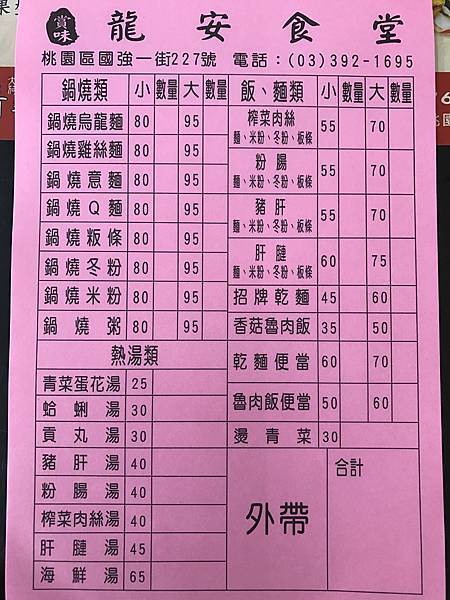 賞味 龍安食堂
桃園區國強一街227號 電話：(03)392-1695
鍋燒類 小 數量 大 數量
鍋燒烏龍麵 80 95
鍋燒雞絲麵 80 95
鍋燒意麵 80 95
鍋燒Q麵 80 95
鍋燒粄條 80 95
鍋燒冬粉 80 95
鍋燒米粉 80 95
鍋燒粥 80 95
熱湯類
青菜蛋花湯 25
蛤蜊湯 30
貢丸湯 30
豬肝湯 40
粉腸湯 40
榨菜肉絲湯 40
肝腱湯 45
海鮮湯 65
飯、麵類 小 數量 大 數量
榨菜肉絲 55 70
麵、米粉、冬粉、板條
粉腸 55 70
麵、米粉、冬粉、板條
豬肝 55 70
麵、米粉、冬粉、板條
肝腱 60 75
麵、米粉、冬粉、板條
招牌乾麵 45 60
香菇魯肉飯 35 50
乾麵便當 60 70
魯肉飯便當 50 60
燙青菜 30
外帶
合計